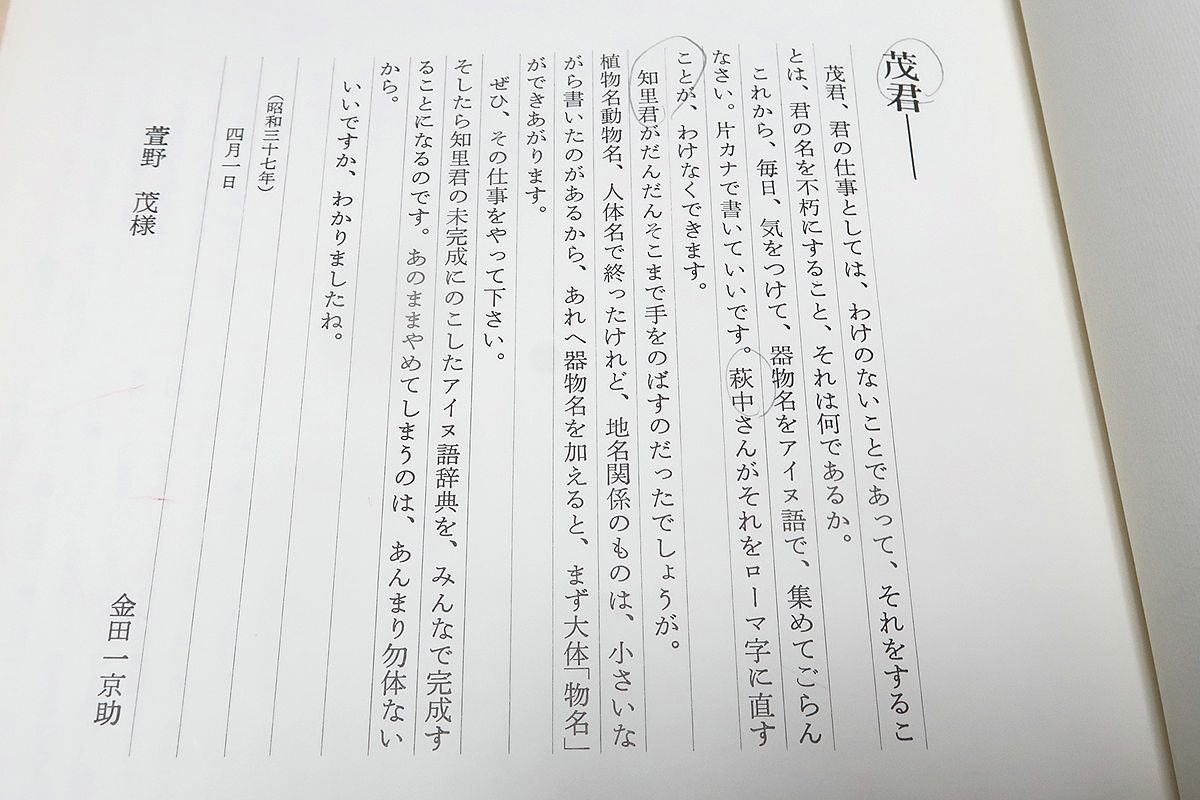 茂君――
茂君、君の仕事としては、わけのないことであって、それをするこ
とは、君の名を不朽にすること、それは何であるか。
これから、毎日、気をつけて、器物名をアイヌ語で、集めてごらん
なさい。片カナで書いていいです。萩中さんがそれをローマ字に直す
ことが、わけなくできます。
知里君がだんだんそこまで手をのばすのだったでしょうが。
植物名動物名、人体名で終ったけれど、地名関係のものは、小さいな
がら書いたのがあるから、あれへ器物名を加えると、まず大体「物名」
ができあがります。
ぜひ、その仕事をやって下さい。
そしたら知里君の未完成にのこしたアイヌ語辞典を、みんなで完成す
ることになるのです。あのままやめてしまうのは、あんまり勿体ない
から。
いいですか、わかりましたね。
（昭和三十七年）
四月一日
萱野 茂様
金田一京助